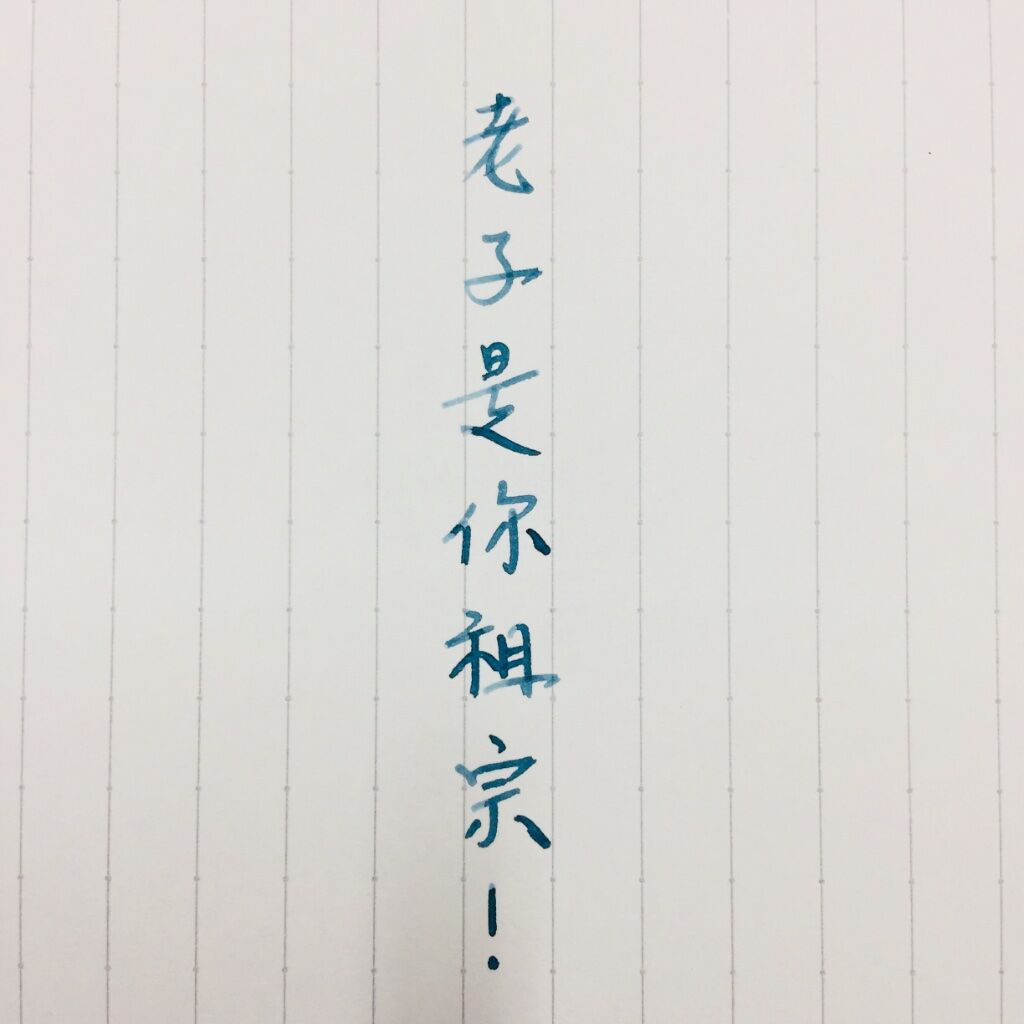 老子是你祖宗！